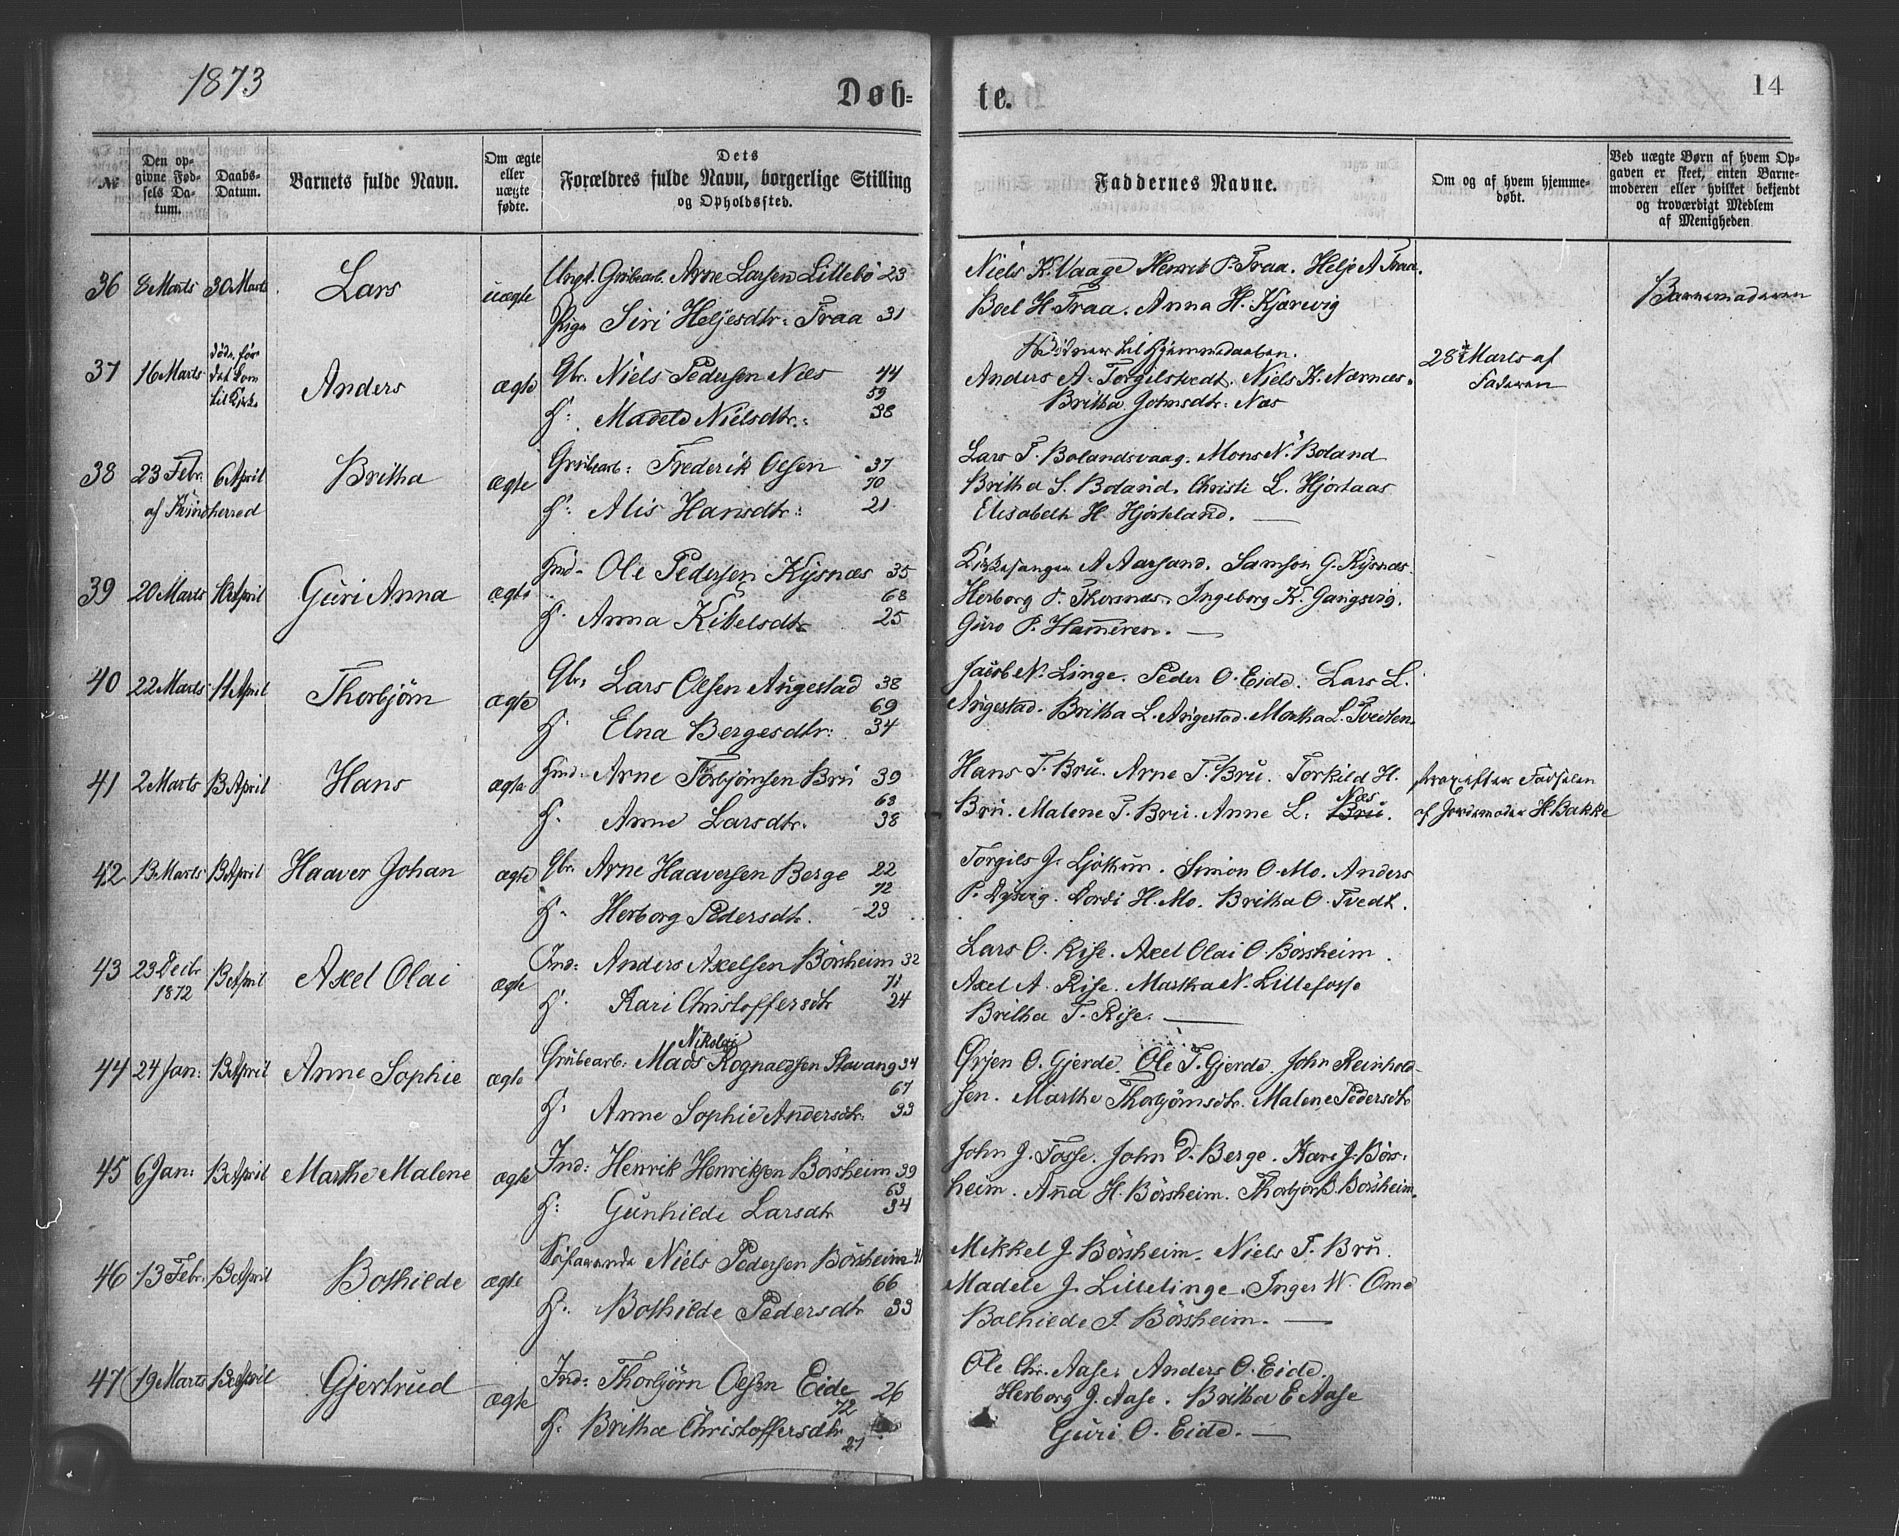 1873
Døb-
te.
14
№
Den op-
givne Fød-
sels Da-
tum.
Daabs-
Datum.
Barnets fulde Navn.
Om ægte
eller
uægte
fødte.
Dets
Forældres fulde Navn, borgerlige Stilling
og Opholdssted.
Faddernes Navne.
Om og af hvem hjemme-
døbt.
Ved uægte Børn af hvem Op-
gaven er skeet, enten Barne-
moderen eller hvilket bekjendt
og troværdigt Medlem
af Menigheden
36 8 Marts 30 Marts Lars uægte Ungk. Grubearb. Arne Larsen Lillebø 23
Pige Siri Heljesdtr: Fraa 31
Niels K. Vaage Henrik P. Fraa. Helje A Fraa.
Boel H Fraa. Anna H. Kjærevig
Barnemoderen
37 16 Marts døde før
det kom
til Kirke
Anders ægte Gbr. Niels Pedersen Næs 44
59
H: Madele Nielsdtr.: 38
Vidner til Hjemmedaaben.
Anders A. Torgilstvedt. Niels K. Nærnæs.
Britha Johnsdtr. Næs
28 Marts af
Faderen
38 23 Febr. 6 April Britha ægte Grubearb: Frederik Olsen 37
70
af Kvindherred
H: Alis Hansdtr: 21
Lars T. Bolandsvaag. Mons N. Boland
Britha S. Boland. Christi L. Hjortaas
Elisabeth H. Hjørteland. —
39 20 Marts 10 April Guri Anna ægte Ind- Ole Pedersen Kysnæs 35
68
H. Anna Kitelsdtr 25
Kirkesanger A Aarsand. Samson G. Kysnæs.
Herborg P. Thorsnæs. Ingeborg K. Gangsvig.
Guro P. Hameren. —
40 22 Marts 11 April Thorbjørn ægte Gbr. Lars Olsen Augestad 38
69
H. Elna Bergesdtr: 34
Jacob N. Linge. Peder O. Eide. Lars L.
Augestad. Britha L. Augestad. Martha L. Tvedten.
41 2 Marts 13 April Hans ægte Ind: Arne Torbjørnsen Bru 39
63
H. Anne Larsdtr. 38
Hans T. Bru. Arne T. Bru. Torkild H.
Næs
Bru. Malene T. Bru. Anne L. Bru.
strax efter Fødselen
af Jordemoder H. Bakke
42 13 Marts 13 April Haaver Johan ægte Gbr. Arne Haaversen Berge 22
72
H. Herborg Pedersdtr. 23
Torgils J. Ljothun. Simon O. Mo. Anders
P. Dysvig. Dordi H. Mo. Britha O. Tvedt.
43 23 Decbr
1872
13 April Axel Olai ægte Ind: Anders Axelsen Børsheim 32
71
H. Kari Christoffersdtr 24
Lars O. Rise. Axel Olai O. Børsheim.
Axel A. Rise. Martha N. Lillefosse
Britha T. Rise. —
44 24 Jan: 13 April Anne Sophie ægte
Nikolai
Grubearb. Mads Rognaldsen Stavang 34
67
H. Anne Sophie Andersdtr: 33
Ørjen O. Gjerde. Ole T. Gjerde. John Reinhold-
sen. Marthe Thorbjørnsdtr. Malene Pedersdtr
45 6 Jan: 13 April Marthe Malene ægte Ind: Henrik Henriksen Børsheim 39
63
H: Gunhilde Larsdtr 34
John J. Fosse. John D. Berge. Kari J. Børs-
heim. Anna H. Børsheim. Thorbjør B. Børsheim.
46 13 Febr. 13 April Bothilde ægte Søfarende Niels Pedersen Børsheim 41
66
H: Bothilde Pedersdtr 33
Mikkel J. Børsheim. Niels T. Bru.
Madele J. Lillelinge. Inger W. Ome
Bolhilde J. Børsheim. —
47 19 Marts 13 April Gjertrud ægte Ind: Thorbjørn Olsen Eide 26
72
H. Britha Christoffersdtr 27
Ole Chr. Aase. Anders O. Eide.
Herborg J. Aase. Britha E Aase
Guri O. Eide. —